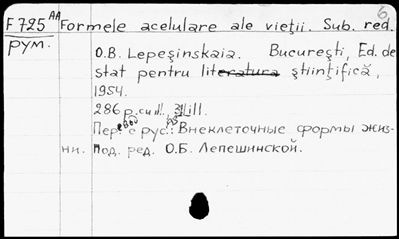 F 725 AA Formele acelulare ale vieţii. Sub. red.
рум. O.B. Lepeşinskaia. Bucureşti, Ed. de
stat pentru literatura ştiinţifică,
1954.
286 p. cu il.
Пер. с рус.: Внеклеточные формы жиз-
ни. Под. ред. О.Б. Лепешинской.